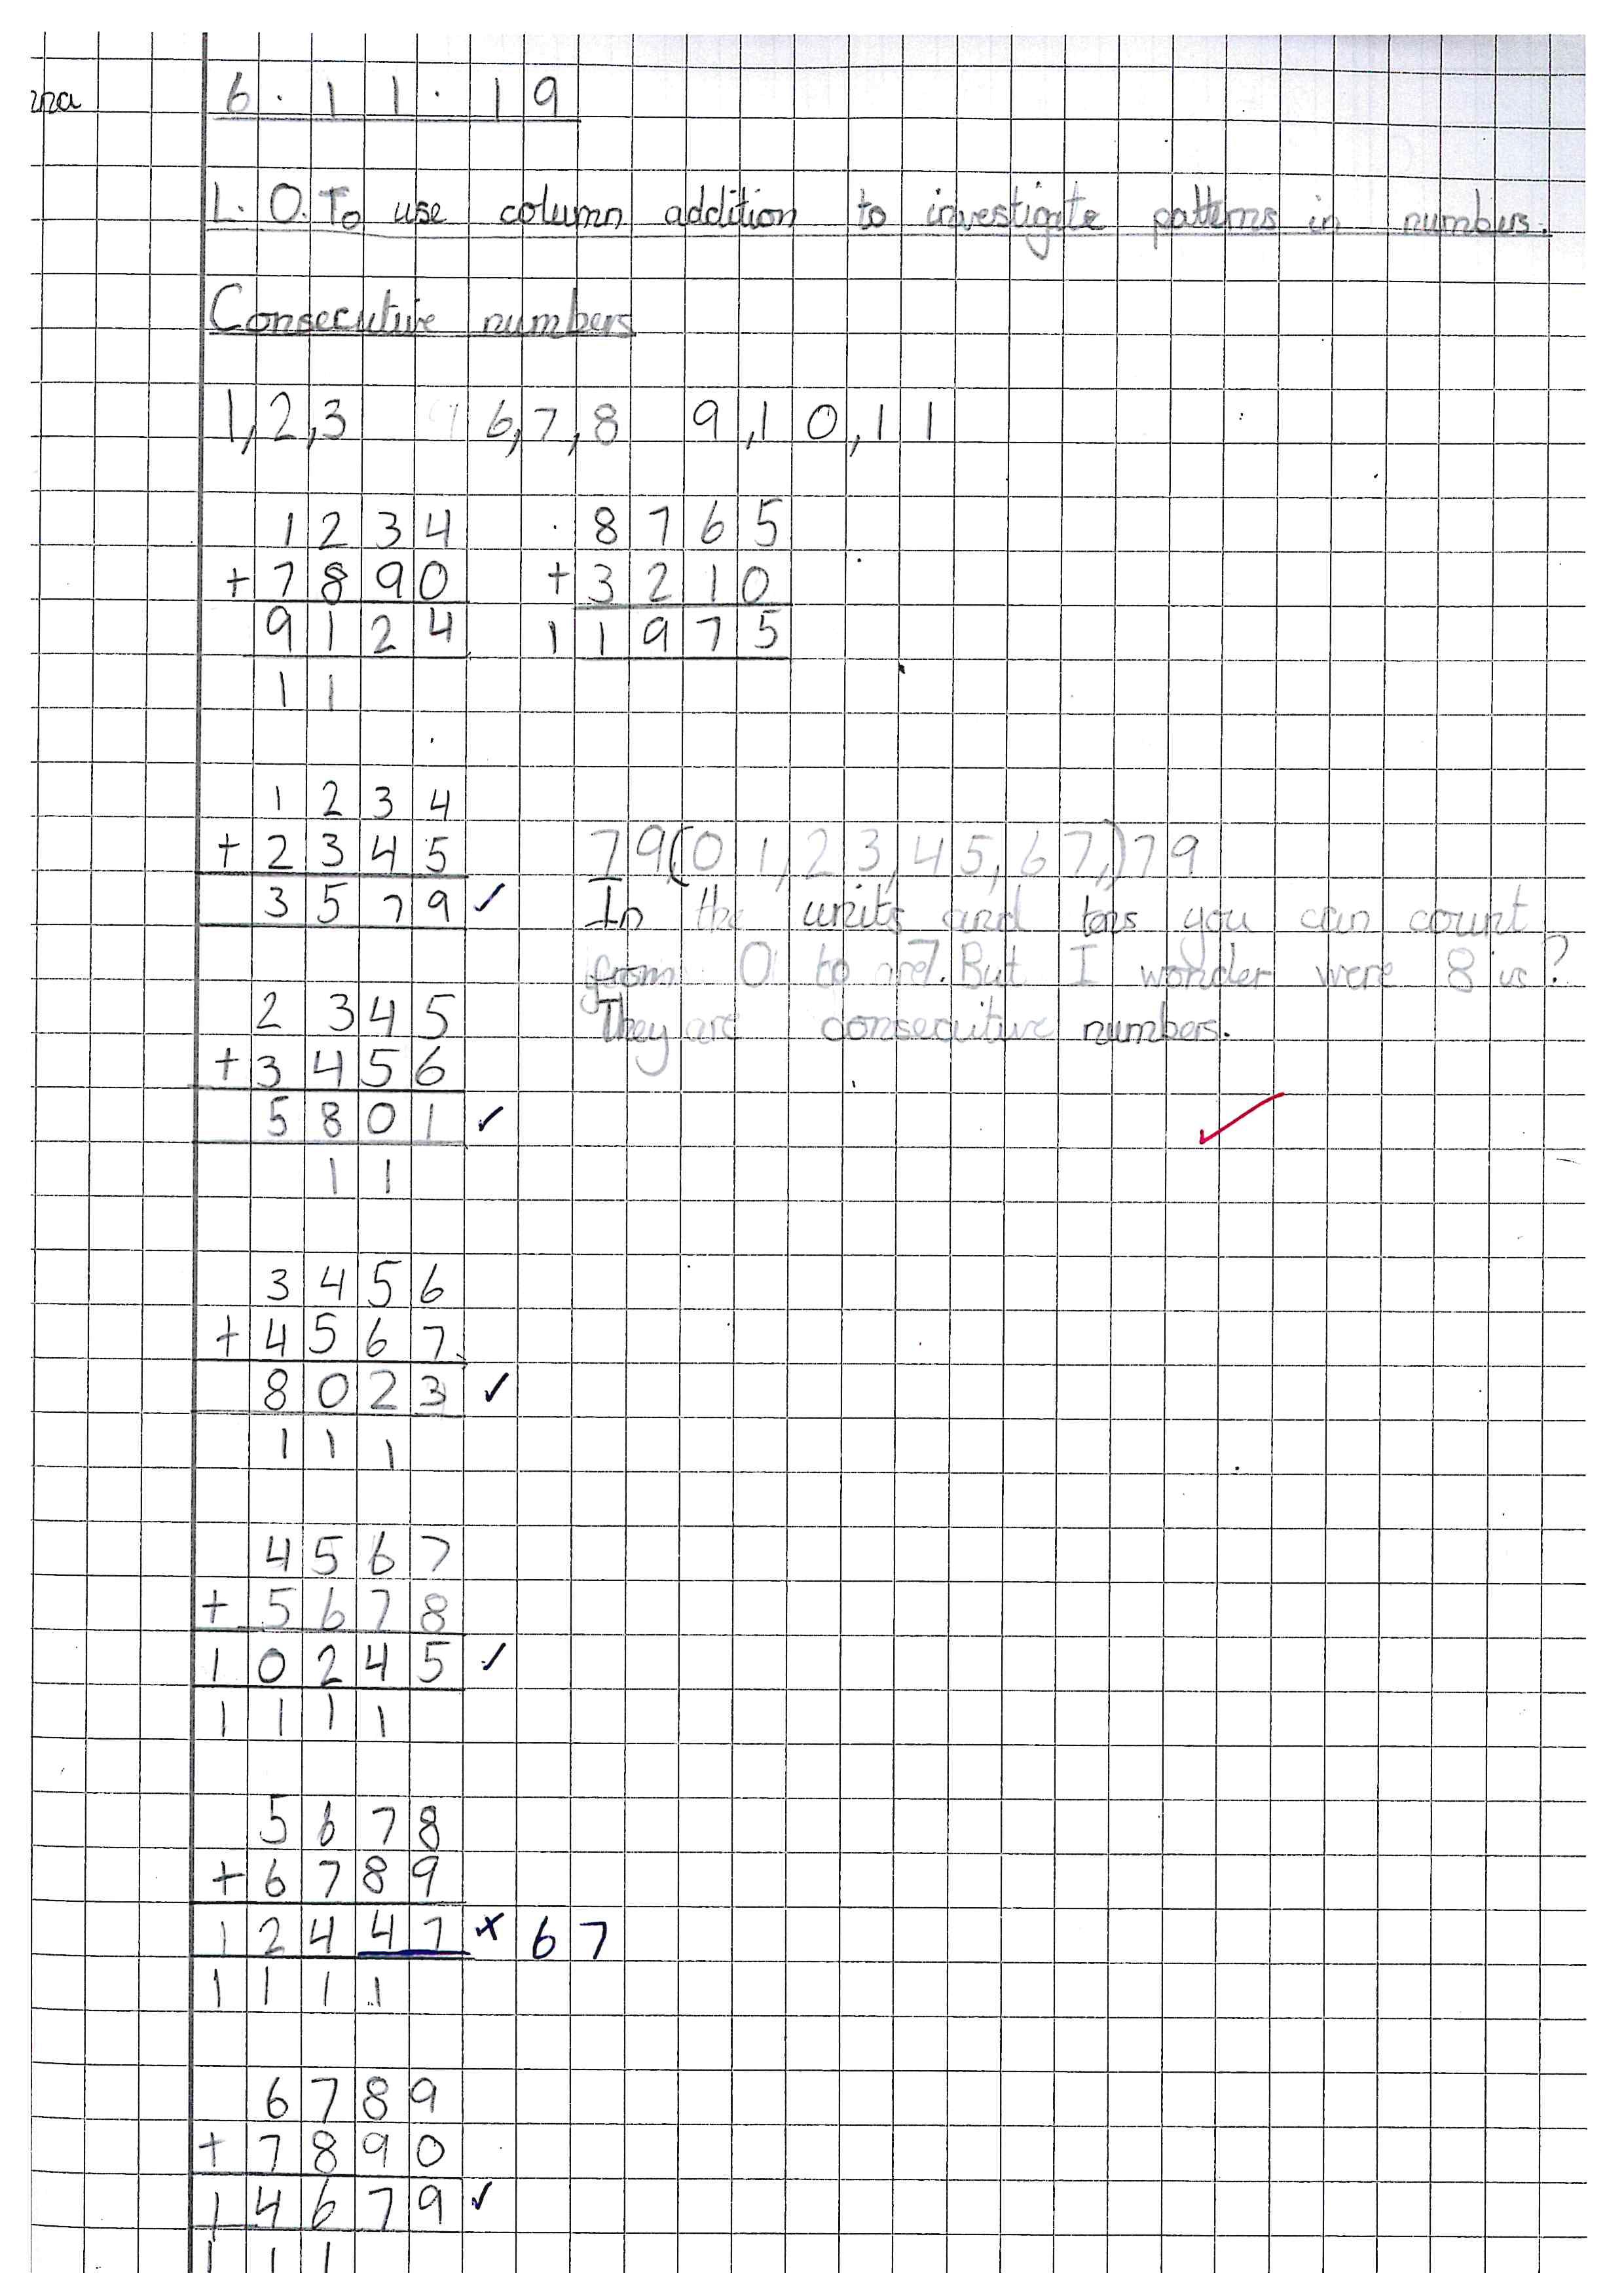 6.11.19
L.O. To use column addition to investigate patterns in numbers.
Consecutive numbers
1,2,3 6,7,8 9,10,11
1234 8765
+7890 +3210
9124 11975
11
1234
+2345
3579 ✓
79(01,23,45,67,)79
In the units and tens you can count
from 0 to 7. But I wonder were 8 is?
They are consecuitive numbers.
2345
+3456
5801 ✓
11
✓
3456
+4567
8023 ✓
111
4567
+5678
10245 ✓
1111
5678
+6789
12447 × 67
1111
6789
+7890
14679 ✓
111